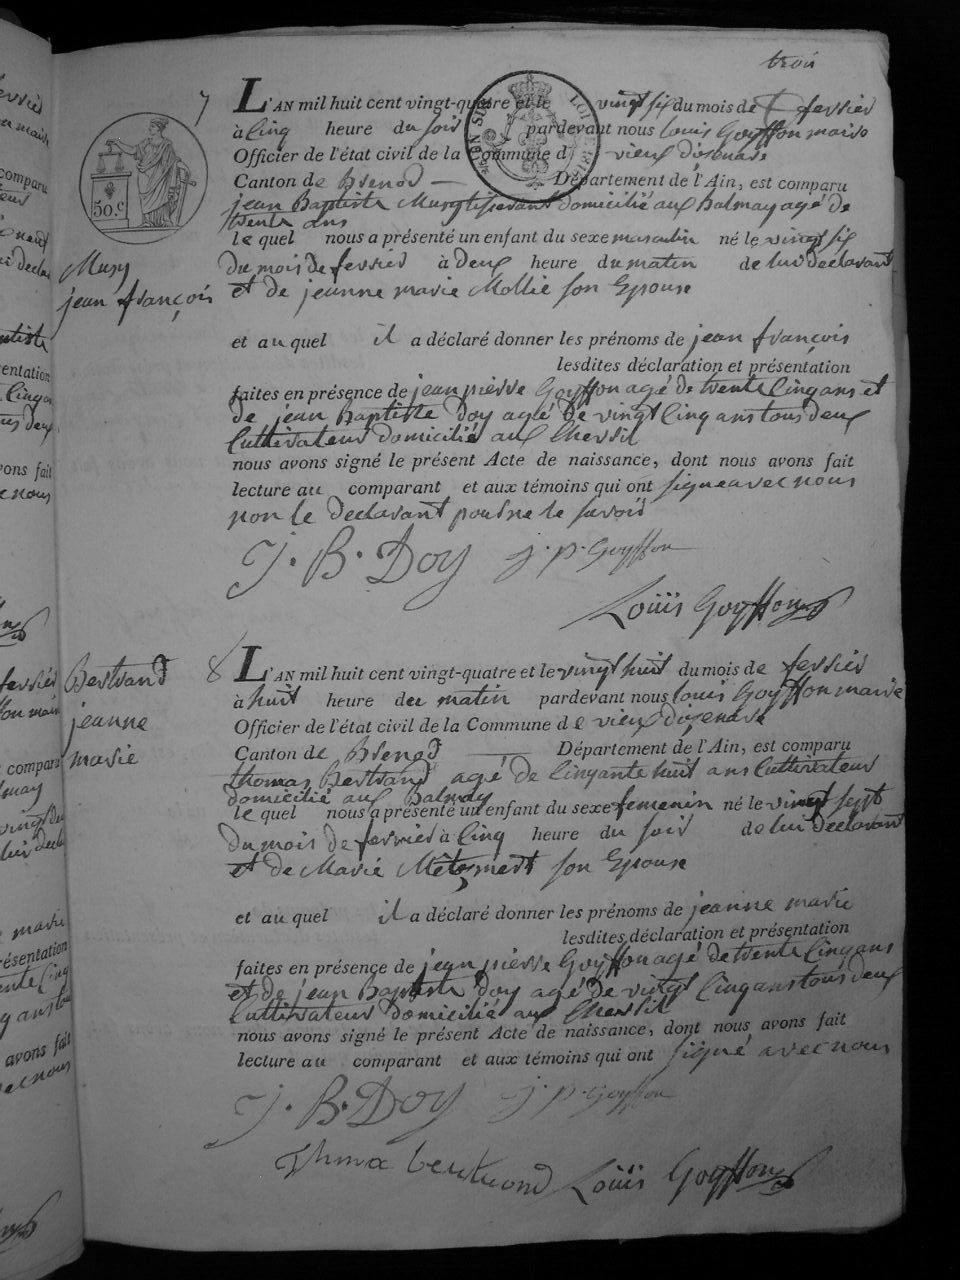 trois
7
L'AN mil huit cent vingt-quatre et le vingt six du mois de fevrier
à Cinq heure du soir pardevant nous louis Goyffon maire
Officier de l'état civil de la Commune d vieux d'izenave
Canton de Brenod Département de l'Ain, est comparu
jean Baptiste Musy domicilié aux Balmay agé de
trente ans
le quel nous a présenté un enfant du sexe masculin né le vingt six
du mois de fevrier à deux heure du matin de lui declarant
et de jeanne marie Mollie son Epouse
Musy
jean françois
50.c
et au quel il a déclaré donner les prénoms de jean françois
lesdites déclaration et présentation
faites en présence de jean pierre Goyffon agé de trente Cinq ans et
de jean Baptiste Doy agé de vingt Cinq ans tous deux
Cultivateur domicilié aux Chersil
nous avons signé le présent Acte de naissance, dont nous avons fait
lecture au comparant et aux témoins qui ont signe avec nous
non le declarant pour ne le savoir
J. B. Doy j. p. Goyffon
Louïs Goyffon
Bertrand
jeanne
marie
8
L'AN mil huit cent vingt-quatre et le vingt huit du mois de fevrier
à huit heure du matin pardevant nous louis Goyffon maire
Officier de l'état civil de la Commune de vieux d'izenave
Canton de Brenod Département de l'Ain, est comparu
thomas Bertrand agé de Cinqante huit ans Cultivateur
domicilié aux Balmay
le quel nous a présenté un enfant du sexe femenin né le vingt sept
du mois de fevrier à Cinq heure du soir de lui declarant
et de Marie son Epouse
et au quel il a déclaré donner les prénoms de jeanne marie
lesdites déclaration et présentation
faites en présence de jean pierre Goyffon agé de trente Cinq ans
et de jean Baptiste Doy agé de vingt Cinq ans tous deux
Cultivateur domicilié aux Chersil
nous avons signé le présent Acte de naissance, dont nous avons fait
lecture au comparant et aux témoins qui ont signé avec nous
J. B. Doy j. p. Goyffon
Thmx bertrand Louïs Goyffon